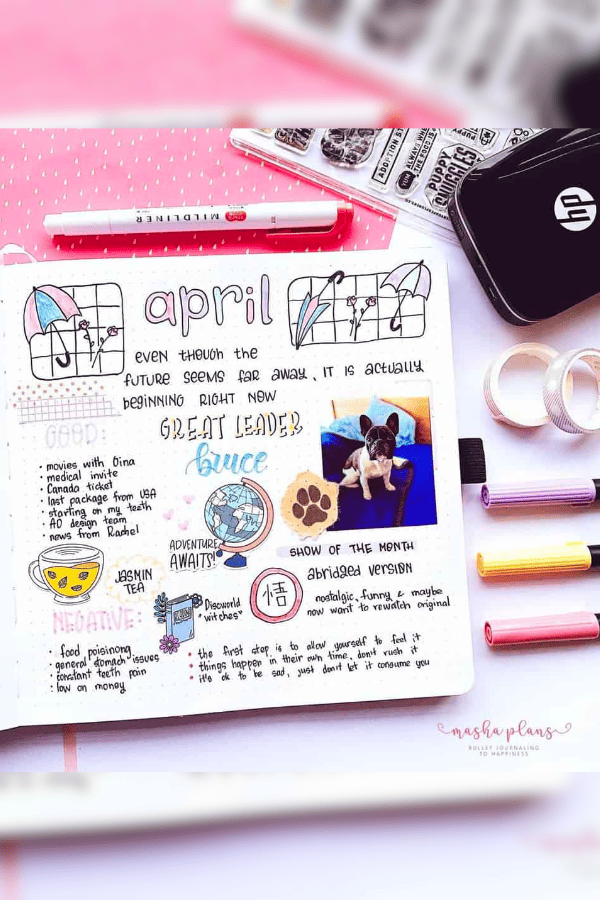 ADOPTION ST
ALWAYS WH
THE FOOD IS A
PUPPY
SNUGGLES
hp
MILDLINER
april
EVEN THOUGH THE
FUTURE SEEMS FAR AWAY, IT IS ACTUALLY
BEGINNING RIGHT NOW
GOOD:
GREAT LEADER
bruce
• movies with Dina
• medical invite
• Canada ticket
• last package from USA
• starting on my teeth
• AO design team
• news from Rachel
ADVENTURE
AWAITS!
SHOW OF THE MONTH
abridged version
悟
nostalgic, funny & maybe
now want to rewatch original
JASMIN
TEA
Discworld
"witches"
NEGATIVE:
• food poisinong
• general stomach issues
• constant teeth pain
• low on money
• the first step is to allow yourself to feel it
• things happen in their own time, don't rush it
• it's ok to be sad, just don't let it consume you
masha plans
BULLET JOURNALING
TO HAPPINESS